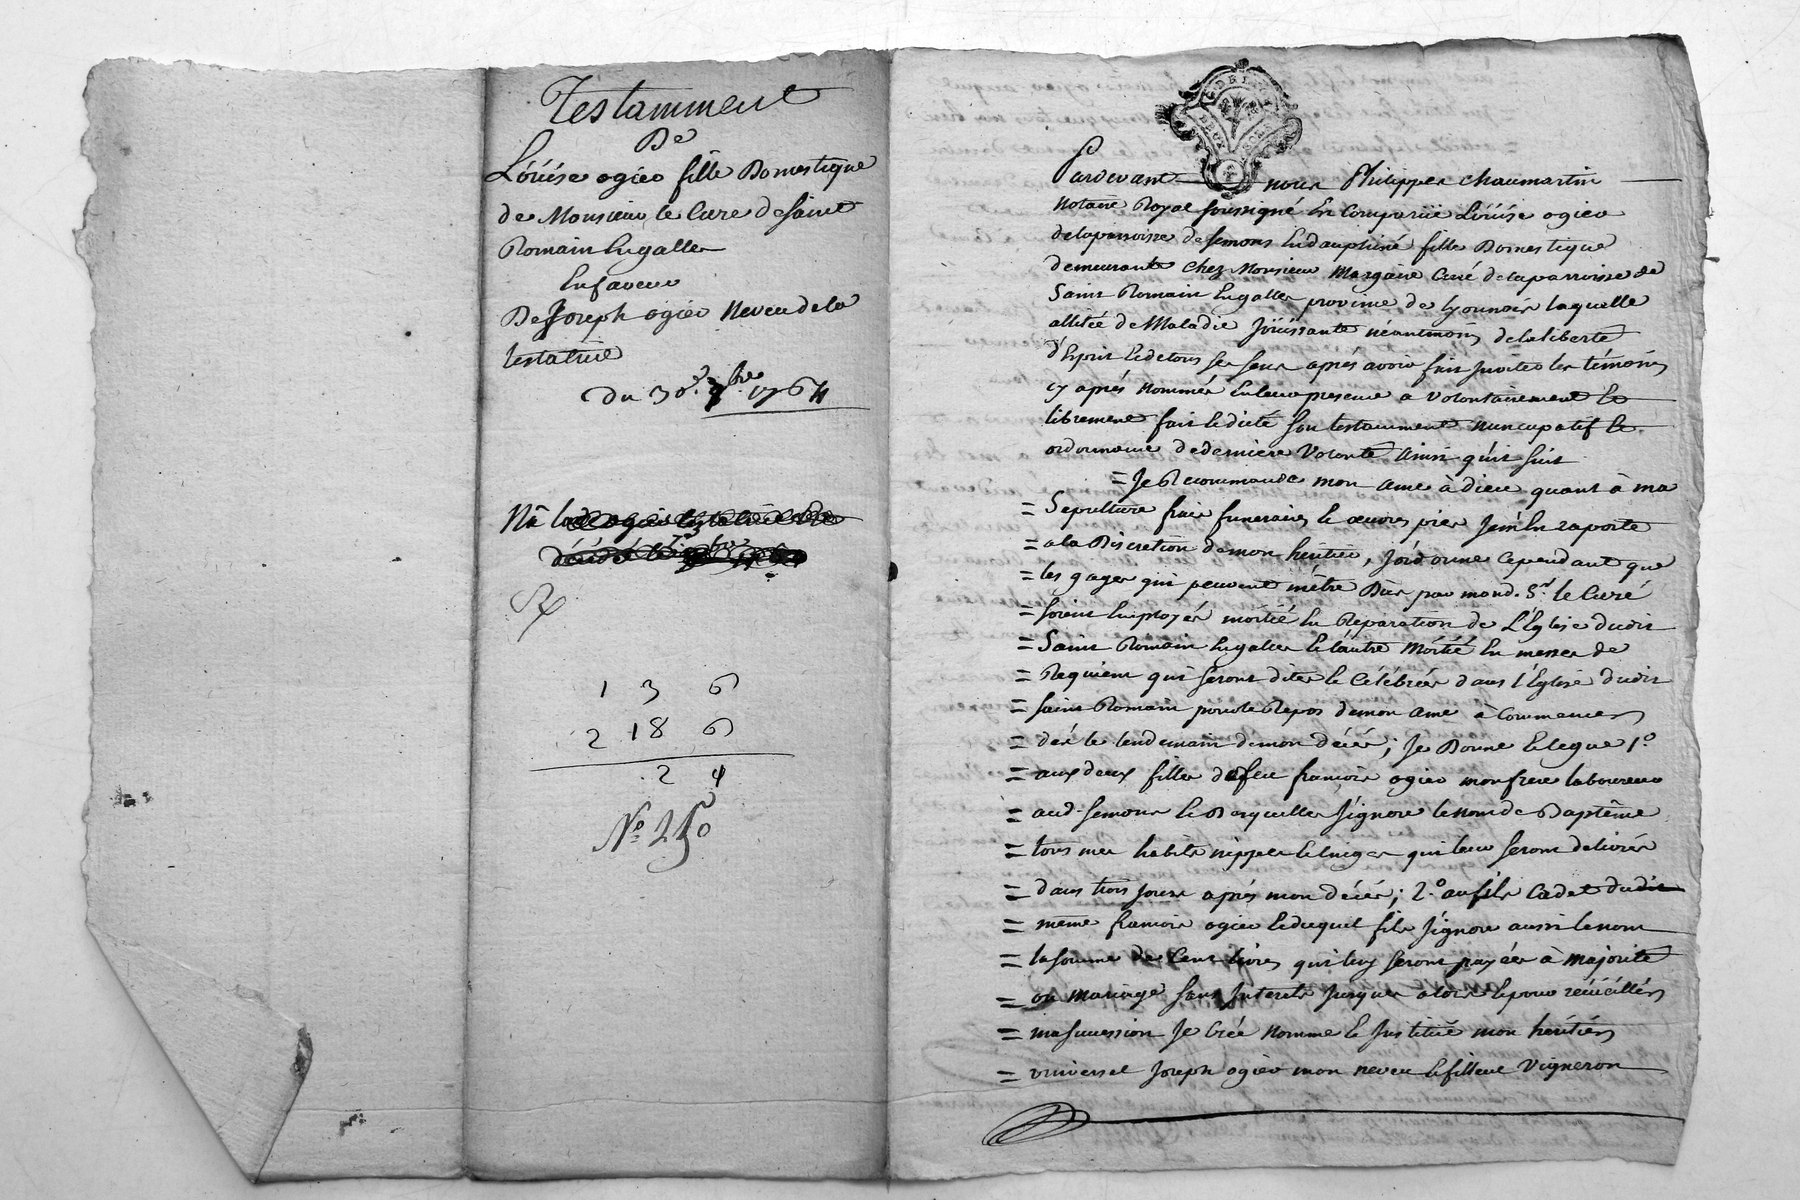 Testamment
De
Loüise ogier fille Domestique
de Monsieur le Cure de Saint
Romain Engaller
Enfaveur
De Joseph ogier Neveu de la
testatrice
Du 30e. 7bre 1764
Na la
1 3 6
2 18 6
2 4
No. 250
Pardevant nous Philippes Chaumartin
Notaire Royal soussigné En Comparüe Loüise ogier
de la parroisse de semons En dauphiné fille Domestique
demeurante chez Monsieur Margaire Curé de la parroisse de
Saint Romain Engaller province de Lyonnois laquelle
allitée de Maladie Joüissante néantmoins de la liberté
d'Esprit Et de tous ses sens aprés avoir fait Jnviter les témoins
cy aprés nommés En leur presence a volontairement Et
librement fait Et dicté son testamment nuncupatif Et
ordonnance de derniere Volonté ainsi qu'il suit
= Je Recommande mon ame à dieu quant à ma
= Sepulture frais funeraires Et œuvres pies Je m'En raporte
= a la Discretion de mon héritier, J'ordonne Cependant que
= les gages qui peuvent m'être Dus par mond. Sr. le Curé
= soient Employés moitié En Réparation de L'Eglise dudit
= Saint Romain Engaller Et l'autre Moitié En messes de
= Requiem qui seront dites Et Célébrées dans l'Eglise dudit
= saint Romain pour le Repos de mon ame à Commencer
= dés le lendemain de mon décés; Je Donne Et legue 1o.
= aux deux filles de feu françois ogier mon frere laboureur
= aud. semons Et Desquelles J'ignore le nom de Baptême
= tous mes habits nippes Et linges qui leur seront délivrés
= dans trois jours aprés mon décés; 2o. au fils Cadet dudit
= même françois ogier Et duquel fils J'ignore aussi le nom
= la somme de Cent livres qui luy seront payées à majorité
= ou mariage sans Jnterets Jusques alors Et pour recüeillir
= ma succession Je Créé Nomme Et Jnstitüe mon héritier
= universel Joseph ogier mon neveu Et filleul Vigneron